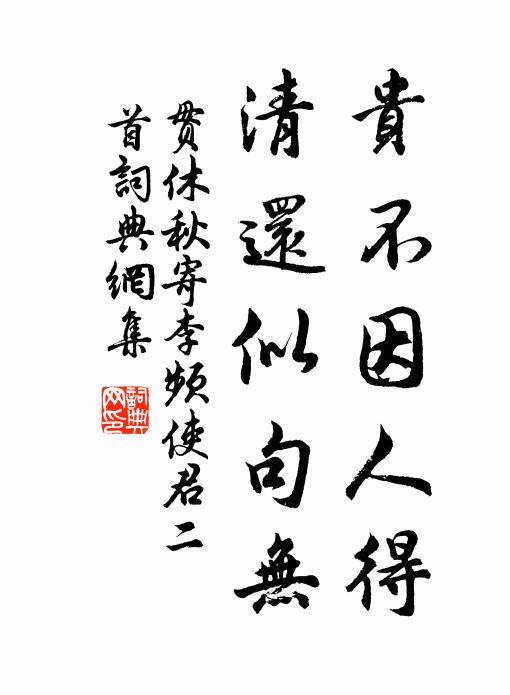 貴不因人得
清還似句無
貫休秋寄李頻使君二
首詞典網集
詞典
网印